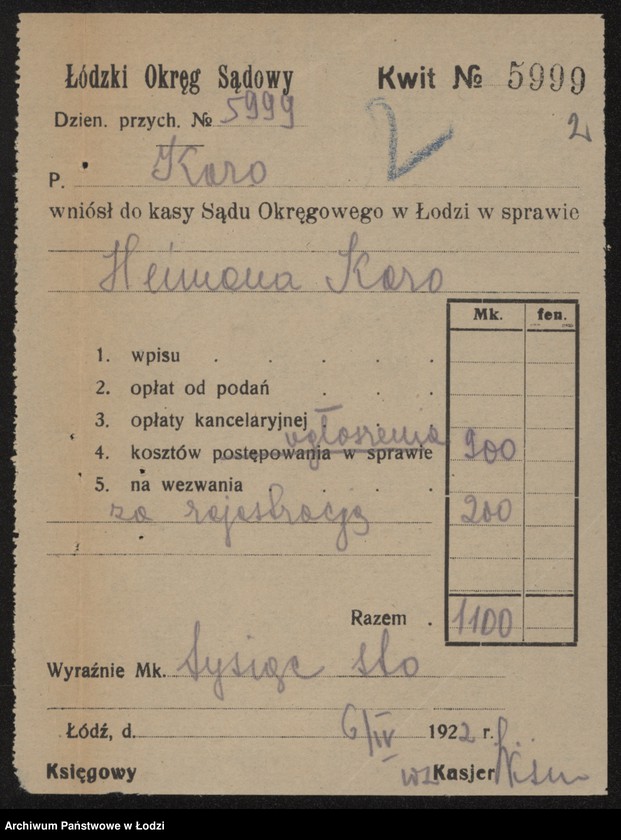 Łódzki Okręg Sądowy Kwit № 5999
Dzien. przych. № 5999 2
P. Karo
wniósł do kasy Sądu Okręgowego w Łodzi w sprawie
Heimana Karo
Mk. fen.
1. wpisu
2. opłat od podań
3. opłaty kancelaryjnej
ogłoszenia
4. kosztów postępowania w sprawie 900
5. na wezwania
za rejestrację 200
Razem 1100
Wyraźnie Mk. tysiąc sto
Łódź, d. 6/IV 1922 r.
Księgowy wz Kasjer
Archiwum Państwowe w Łodzi